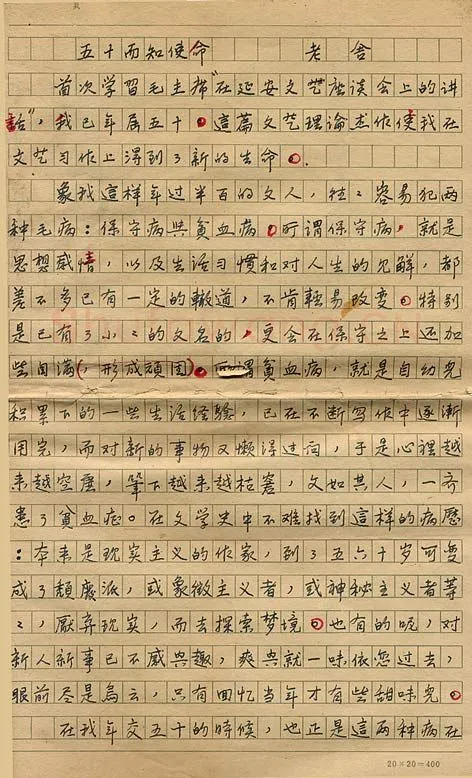 五十而知使命 老舍
首次学習毛主席“在延安文艺座談会上的讲
話”，我已年届五十。這篇文艺理論杰作使我在
文艺习作上得到了新的生命。
象我這样年过半百的文人，往々容易犯两
种毛病：保守病與貧血病。所谓保守病，就是
思想感情，以及生活习惯和对人生的见解，都
差不多已有一定的轍道，不肯輕易改变。特别
是已有了小々的文名的，更会在保守之上还加
些自满（，形成頑固）。所謂貧血病，就是自幼儿
积累下的一些生活经驗，已在不断写作中逐漸
用完，而对新的事物又懒得过问，于是心裡越
来越空虚，筆下越来越枯窘，文如其人，一齐
患了貧血症。在文学史中不难找到這样的病歷
：本来是现实主义的作家，到了五六十岁可变
成了頹废派，或象徵主义者，或神秘主义者等
々，厭弃现实，而去探索梦境。也有的呢，对
新人新事已不感興趣，爽興就一味依恋过去，
眼前尽是烏云，只有回忆当年才有些甜味兒。
在我年交五十的時候，也正是這两种病在
20×20=400